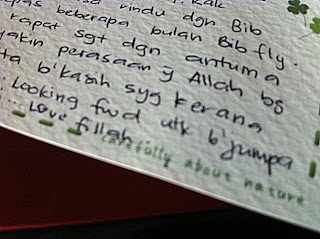 rindu dgn Bib
beberapa bulan Bib fly.
rapat sgt dgn antuma
yakin perasaan yg Allah bg
ta b'kasih syg kerana
Looking fwd utk b'jumpa
... Love fillah
carefully about nature